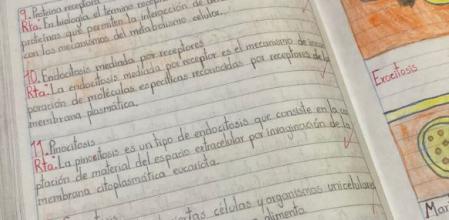 9. Proteína receptora
Rta: En biología el término
proteínas que permiten la interacción de
con los mecanismos del metabolismo celular.
10. Endocitosis mediada por receptores
Rta: La endocitosis mediada por receptor es el mecanismo de
poración de moléculas específicas reconocidas por receptores de la
membrana plasmática.
11. Pinocitosis
Rta: La pinocitosis es un tipo de endocitosis que consiste en la
ptación de material del espacio extracelular por invaginación de la
membrana citoplasmática eucariota.
células y organismos unicelulares
alimento
Exocitosis
Mar